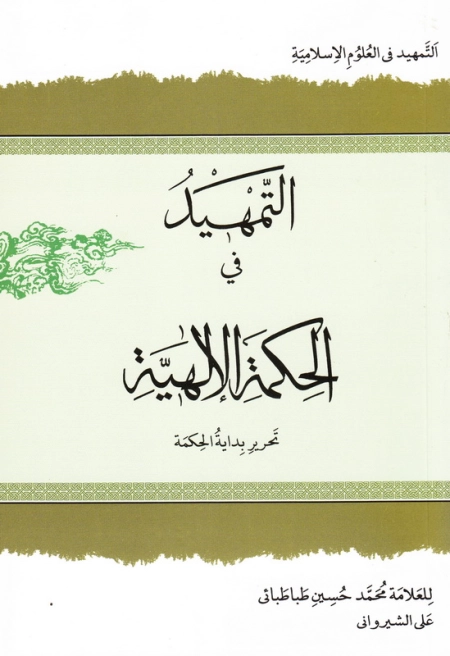 اَلتَّمهید فی العُلُومِ الإسلامِیَةِ
التَّمْهِيْدُ
في
الحِكمَةِ الإلٰهِيَّةِ
تَحریرِ بِدایةُ الحِکمَة
لِلعَلامَة مُحَمَّد حُسِینِ طَباطَبائی
عَلی الشیروانی